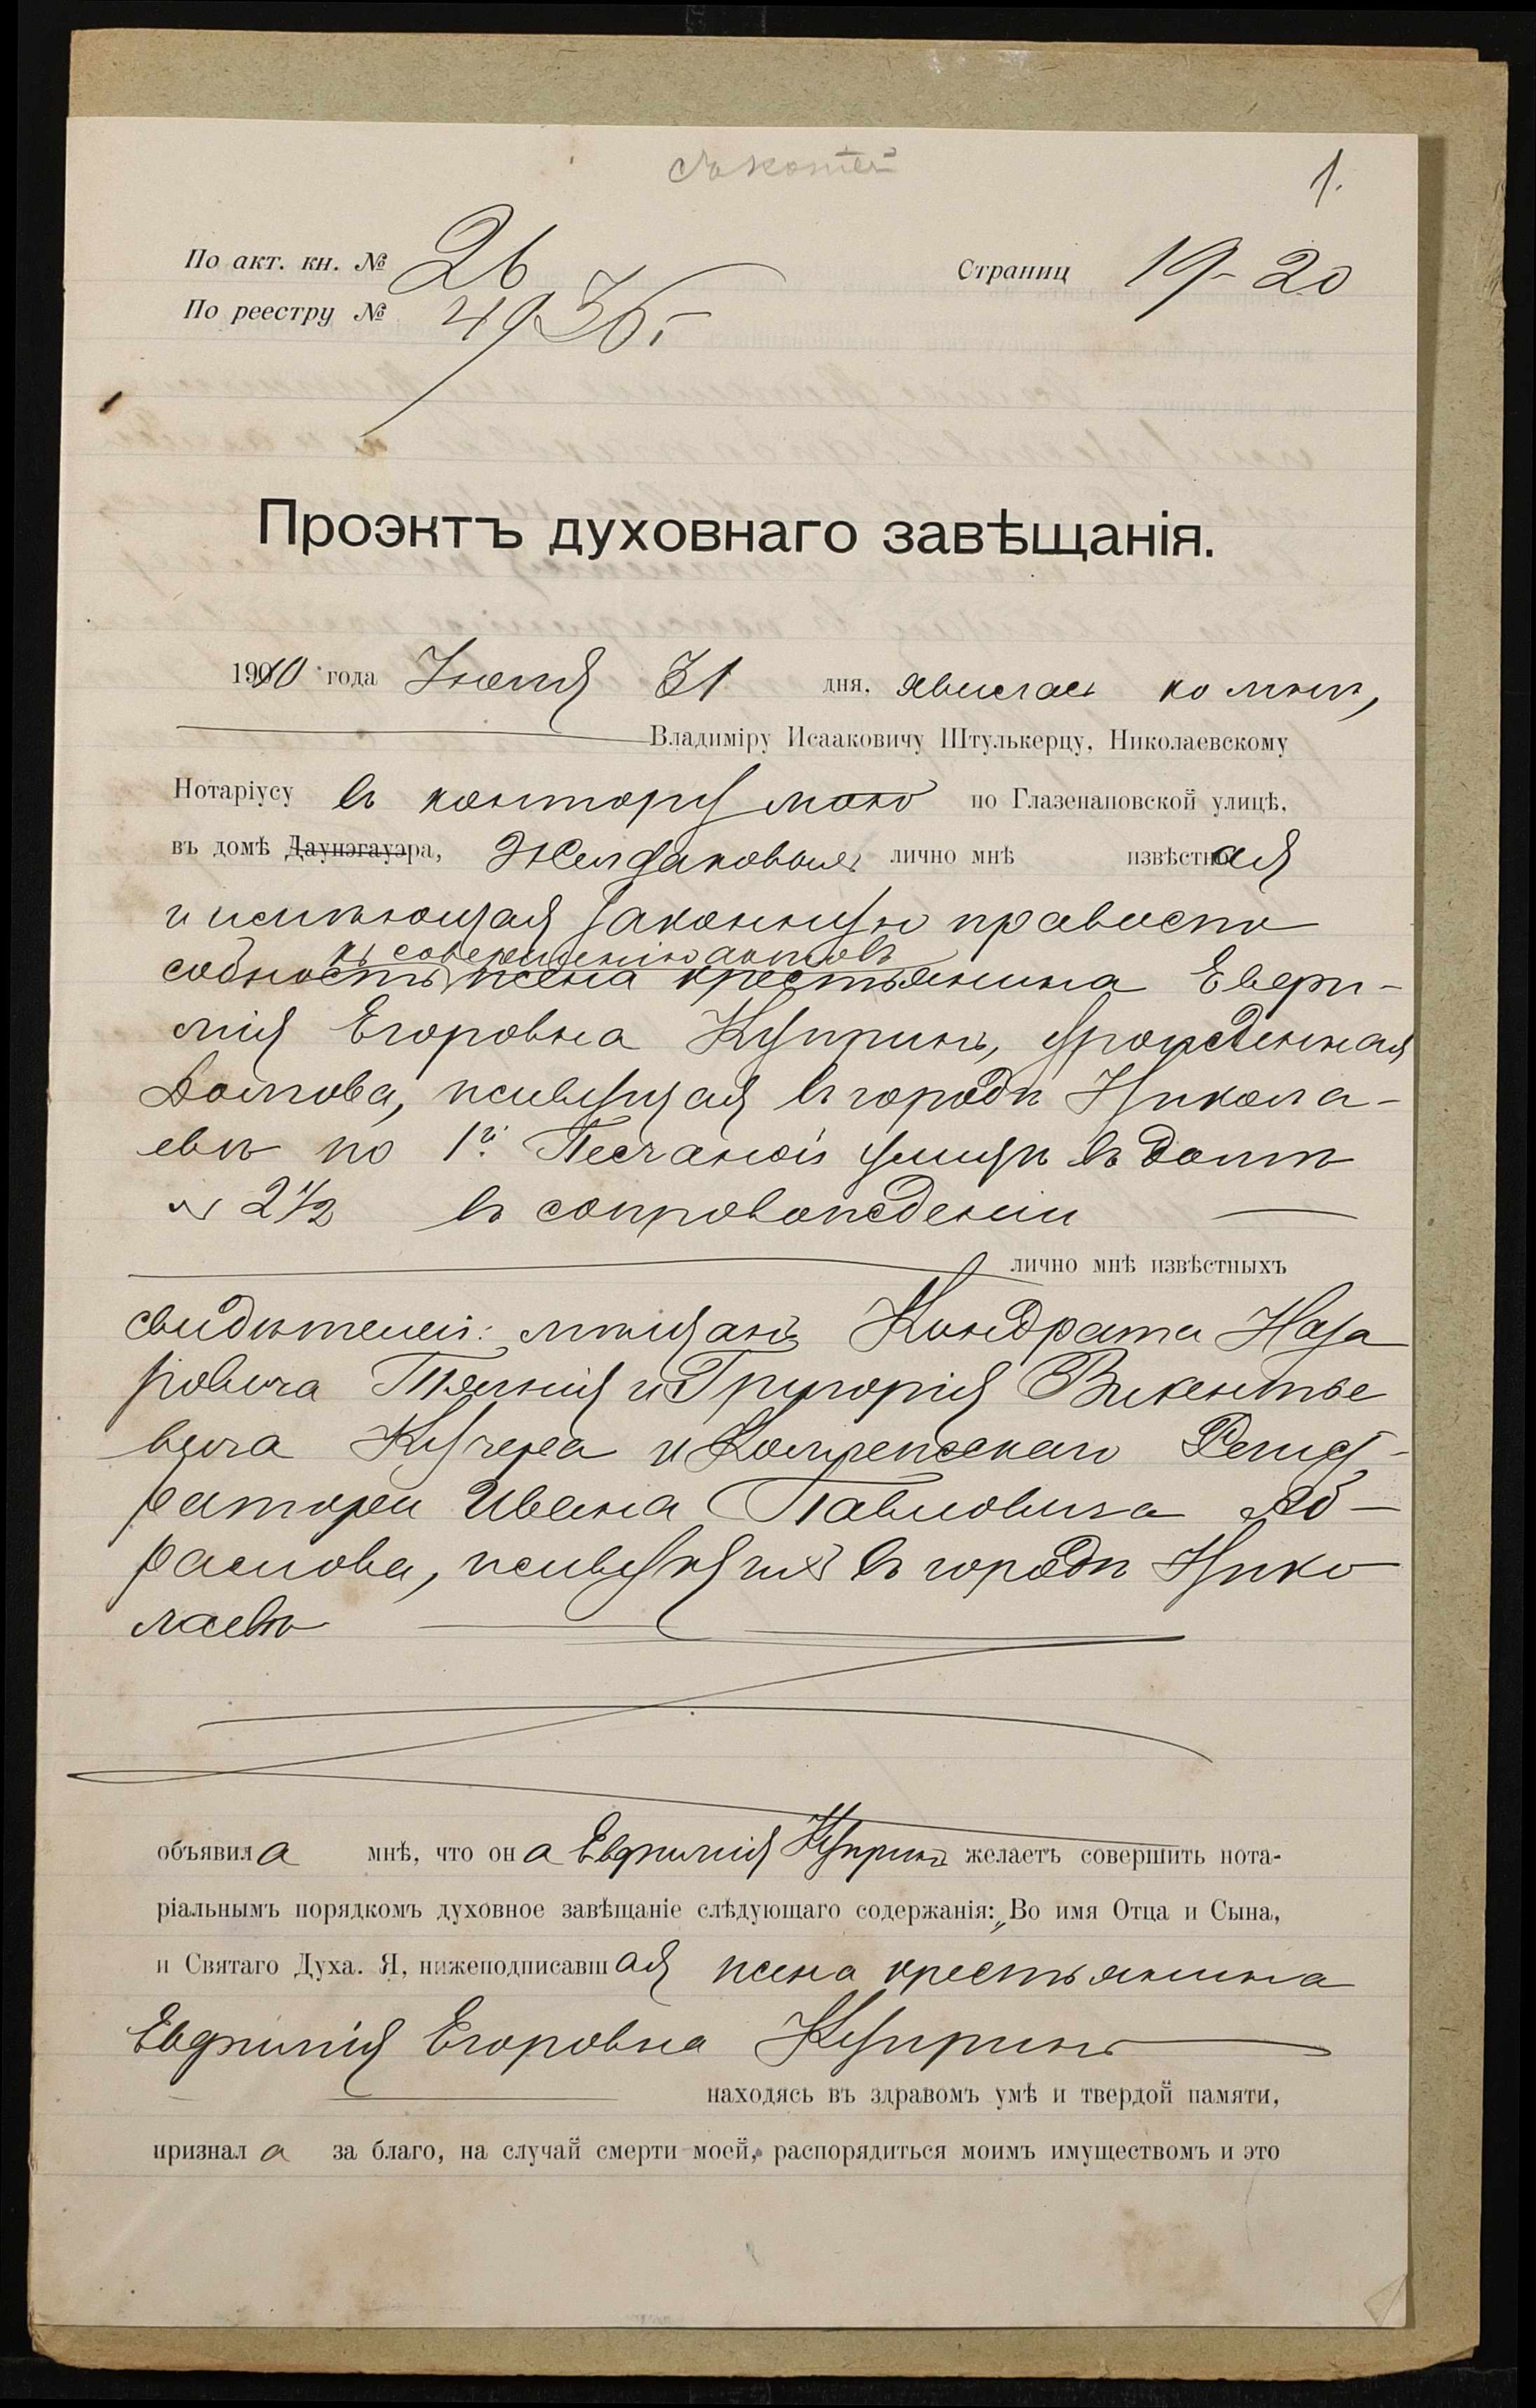 1.
По акт. кн. № 26
Страниц 19-20
По реестру № 4936
Проэктъ духовнаго завѣщанія.
1910 года Іюля 31 дня, явилась ко мнѣ,
Владиміру Исааковичу Штулькерцу, Николаевскому
Нотаріусу въ контору мою по Глазенаповской улицѣ,
въ домѣ Даунэгауэра, Желдаковыхъ лично мнѣ извѣстная
и имѣющая законную правоспо
къ совершенію актовъ
собность жена крестьянина Евфи-
мія Егоровна Купринъ, урожденная
живущая въ городѣ Никола-
евѣ по 1й Песчаной улицѣ въ домѣ
№ 2 1/2 въ сопровожденіи
лично мнѣ извѣстныхъ
свидѣтелей: мѣщанъ Кондрата Наза
ровича и Григорія Викентье
вича Кучера и Коллежскаго Регист-
ратора Ивана Павловича Аб-
рамова, живущихъ въ городѣ Нико
лаевѣ
объявила мнѣ, что она Евфимія Купринъ желаетъ совершить нота-
ріальнымъ порядкомъ духовное завѣщаніе слѣдующаго содержанія: „Во имя Отца и Сына,
и Святаго Духа. Я, нижеподписавшаяся жена крестьянина
Евфимія Егоровна Купринъ
находясь въ здравомъ умѣ и твердой памяти,
признала за благо, на случай смерти моей, распорядиться моимъ имуществомъ и это